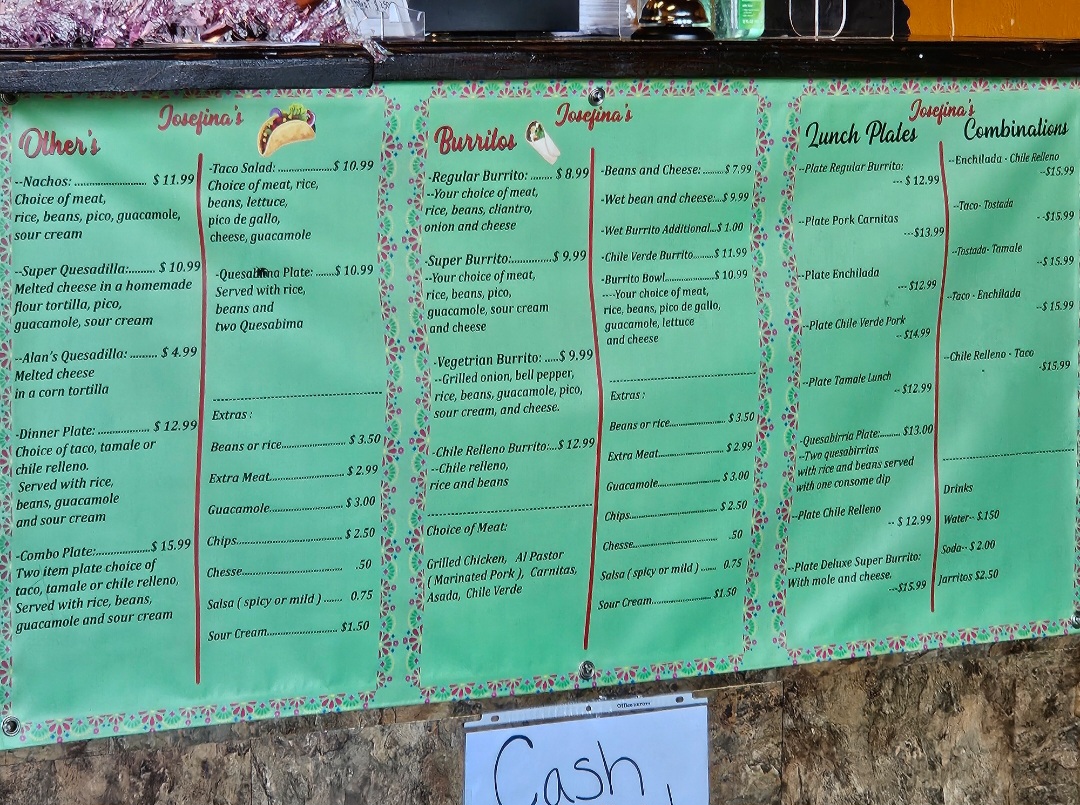 Josefina's
Other's
--Nachos: .................... $ 11.99
Choice of meat,
rice, beans, pico, guacamole,
sour cream
--Super Quesadilla:........ $ 10.99
Melted cheese in a homemade
flour tortilla, pico,
guacamole, sour cream
--Alan's Quesadilla: ......... $ 4.99
Melted cheese
in a corn tortilla
-Dinner Plate: ................ $ 12.99
Choice of taco, tamale or
chile relleno.
Served with rice,
beans, guacamole
and sour cream
-Combo Plate:................ $ 15.99
Two item plate choice of
taco, tamale or chile relleno,
Served with rice, beans,
guacamole and sour cream
-Taco Salad: ..............$ 10.99
Choice of meat, rice,
beans, lettuce,
pico de gallo,
cheese, guacamole
-Quesabima Plate: ......$ 10.99
Served with rice,
beans and
two Quesabima
Extras :
Beans or rice...................... $ 3.50
Extra Meat....................... $ 2.99
Guacamole...................... $ 3.00
Chips............................ $ 2.50
Chesse.......................... .50
Salsa ( spicy or mild ) ...... 0.75
Sour Cream..................... $1.50
Josefina's
Burritos
-Regular Burrito: ........ $ 8.99
--Your choice of meat,
rice, beans, cliantro,
onion and cheese
-Super Burrito:............. $ 9.99
--Your choice of meat,
rice, beans, pico,
guacamole, sour cream
and cheese
-Vegetrian Burrito: .....$ 9.99
--Grilled onion, bell pepper,
rice, beans, guacamole, pico,
sour cream, and cheese.
-Chile Relleno Burrito:...$ 12.99
--Chile relleno,
rice and beans
Choice of Meat:
Grilled Chicken, Al Pastor
( Marinated Pork ), Carnitas,
Asada, Chile Verde
-Beans and Cheese: ........$ 7.99
-Wet bean and cheese....$ 9.99
-Wet Burrito Additional...$ 1.00
-Chile Verde Burrito....... $ 11.99
-Burrito Bowl................ $ 10.99
----Your choice of meat,
rice, beans, pico de gallo,
guacamole, lettuce
and cheese
Extras :
Beans or rice..................... $ 3.50
Extra Meat....................... $ 2.99
Guacamole...................... $ 3.00
Chips............................ $ 2.50
Chesse.......................... .50
Salsa ( spicy or mild ) ...... 0.75
Sour Cream..................... $1.50
Josefina's
Lunch Plates
--Plate Regular Burrito:
--- $ 12.99
--Plate Pork Carnitas
---$13.99
--Plate Enchilada
--- $12.99
--Plate Chile Verde Pork
--$14.99
--Plate Tamale Lunch
-- $12.99
-Quesabirria Plate:...... $13.00
--Two quesabirrias
with rice and beans served
with one consome dip
--Plate Chile Relleno
-- $ 12.99
--Plate Deluxe Super Burrito:
With mole and cheese.
--$15.99
Combinations
--Enchilada - Chile Relleno
--$15.99
--Taco- Tostada
--$15.99
--Tostada- Tamale
--$ 15.99
--Taco - Enchilada
--$ 15.99
--Chile Relleno - Taco
-$15.99
Drinks
Water-- $.150
Soda-- $ 2.00
Jarritos $2.50
Cash